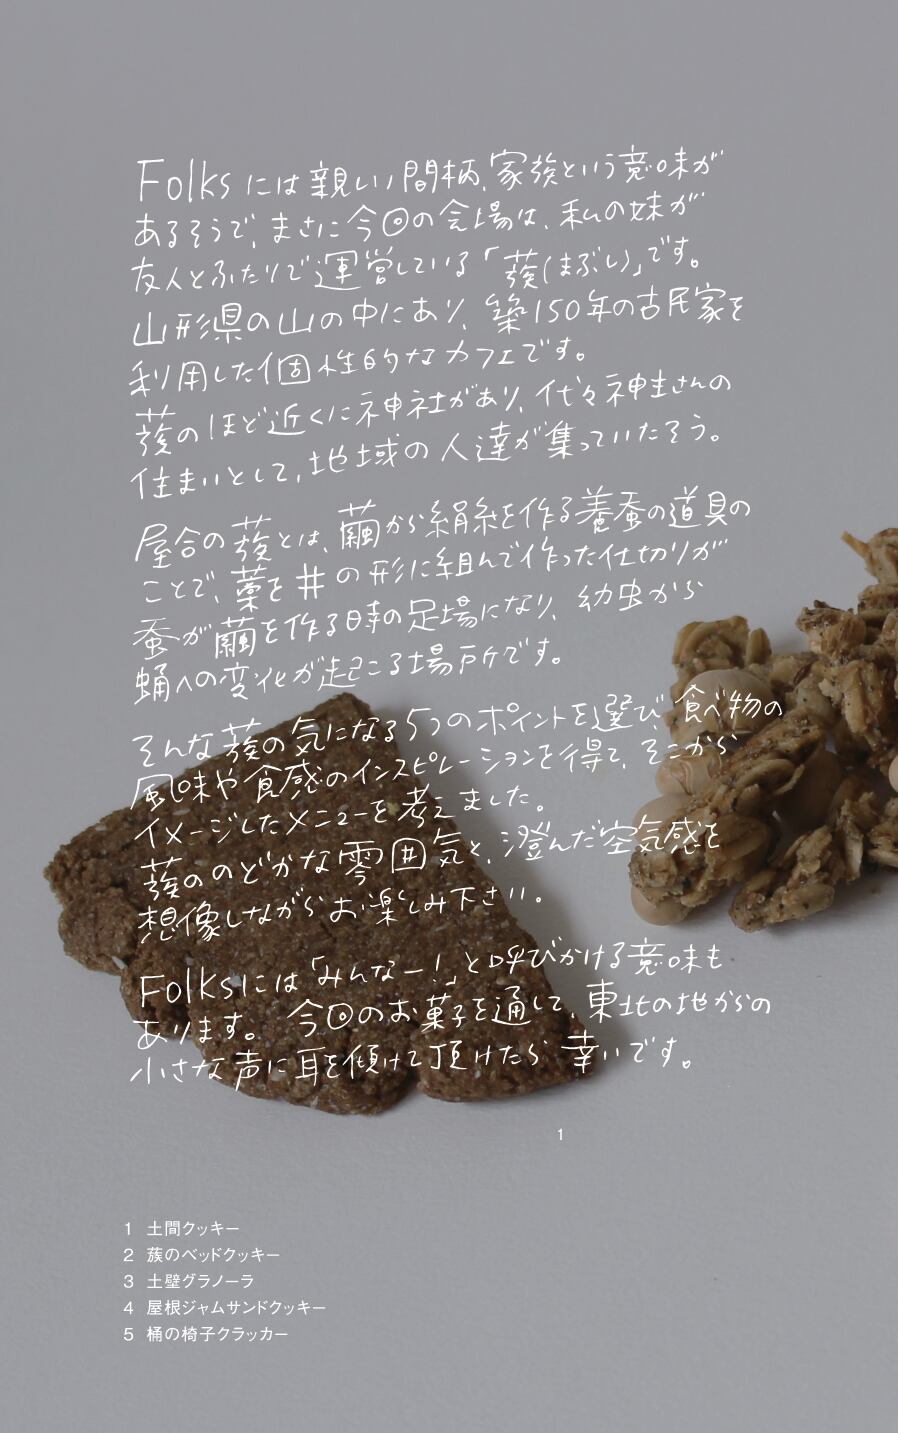 Folksには親しい間柄、家族という意味が
あるそうで、まさに今回の会場は、私の妹が
友人とふたりで運営している「蔟(まぶし)」です。
山形県の山の中にあり、築150年の古民家を
利用した個性的なカフェです。
蔟のほど近くに神社があり、代々神主さんの
住まいとして、地域の人達が集っていたそう。
屋合の蔟とは、繭から絹糸を作る養蚕の道具の
ことで、藁を井の形に組んで作った仕切りが
蚕が繭を作る時の足場になり、幼虫から
蛹への変化が起こる場所です。
そんな蔟の気になる5つのポイントを選び、食べ物の
風味や食感のインスピレーションを得て、そこから
イメージしたメニューを考えました。
蔟ののどかな雰囲気と、澄んだ空気感を
想像しながらお楽しみ下さい。
Folksには「みんなー!」と呼びかける意味も
あります。 今回のお菓子を通して、東北の地からの
小さな声に耳を傾けて頂けたら幸いです。
1
1 土間クッキー
2 蔟のベッドクッキー
3 土壁グラノーラ
4 屋根ジャムサンドクッキー
5 桶の椅子クラッカー